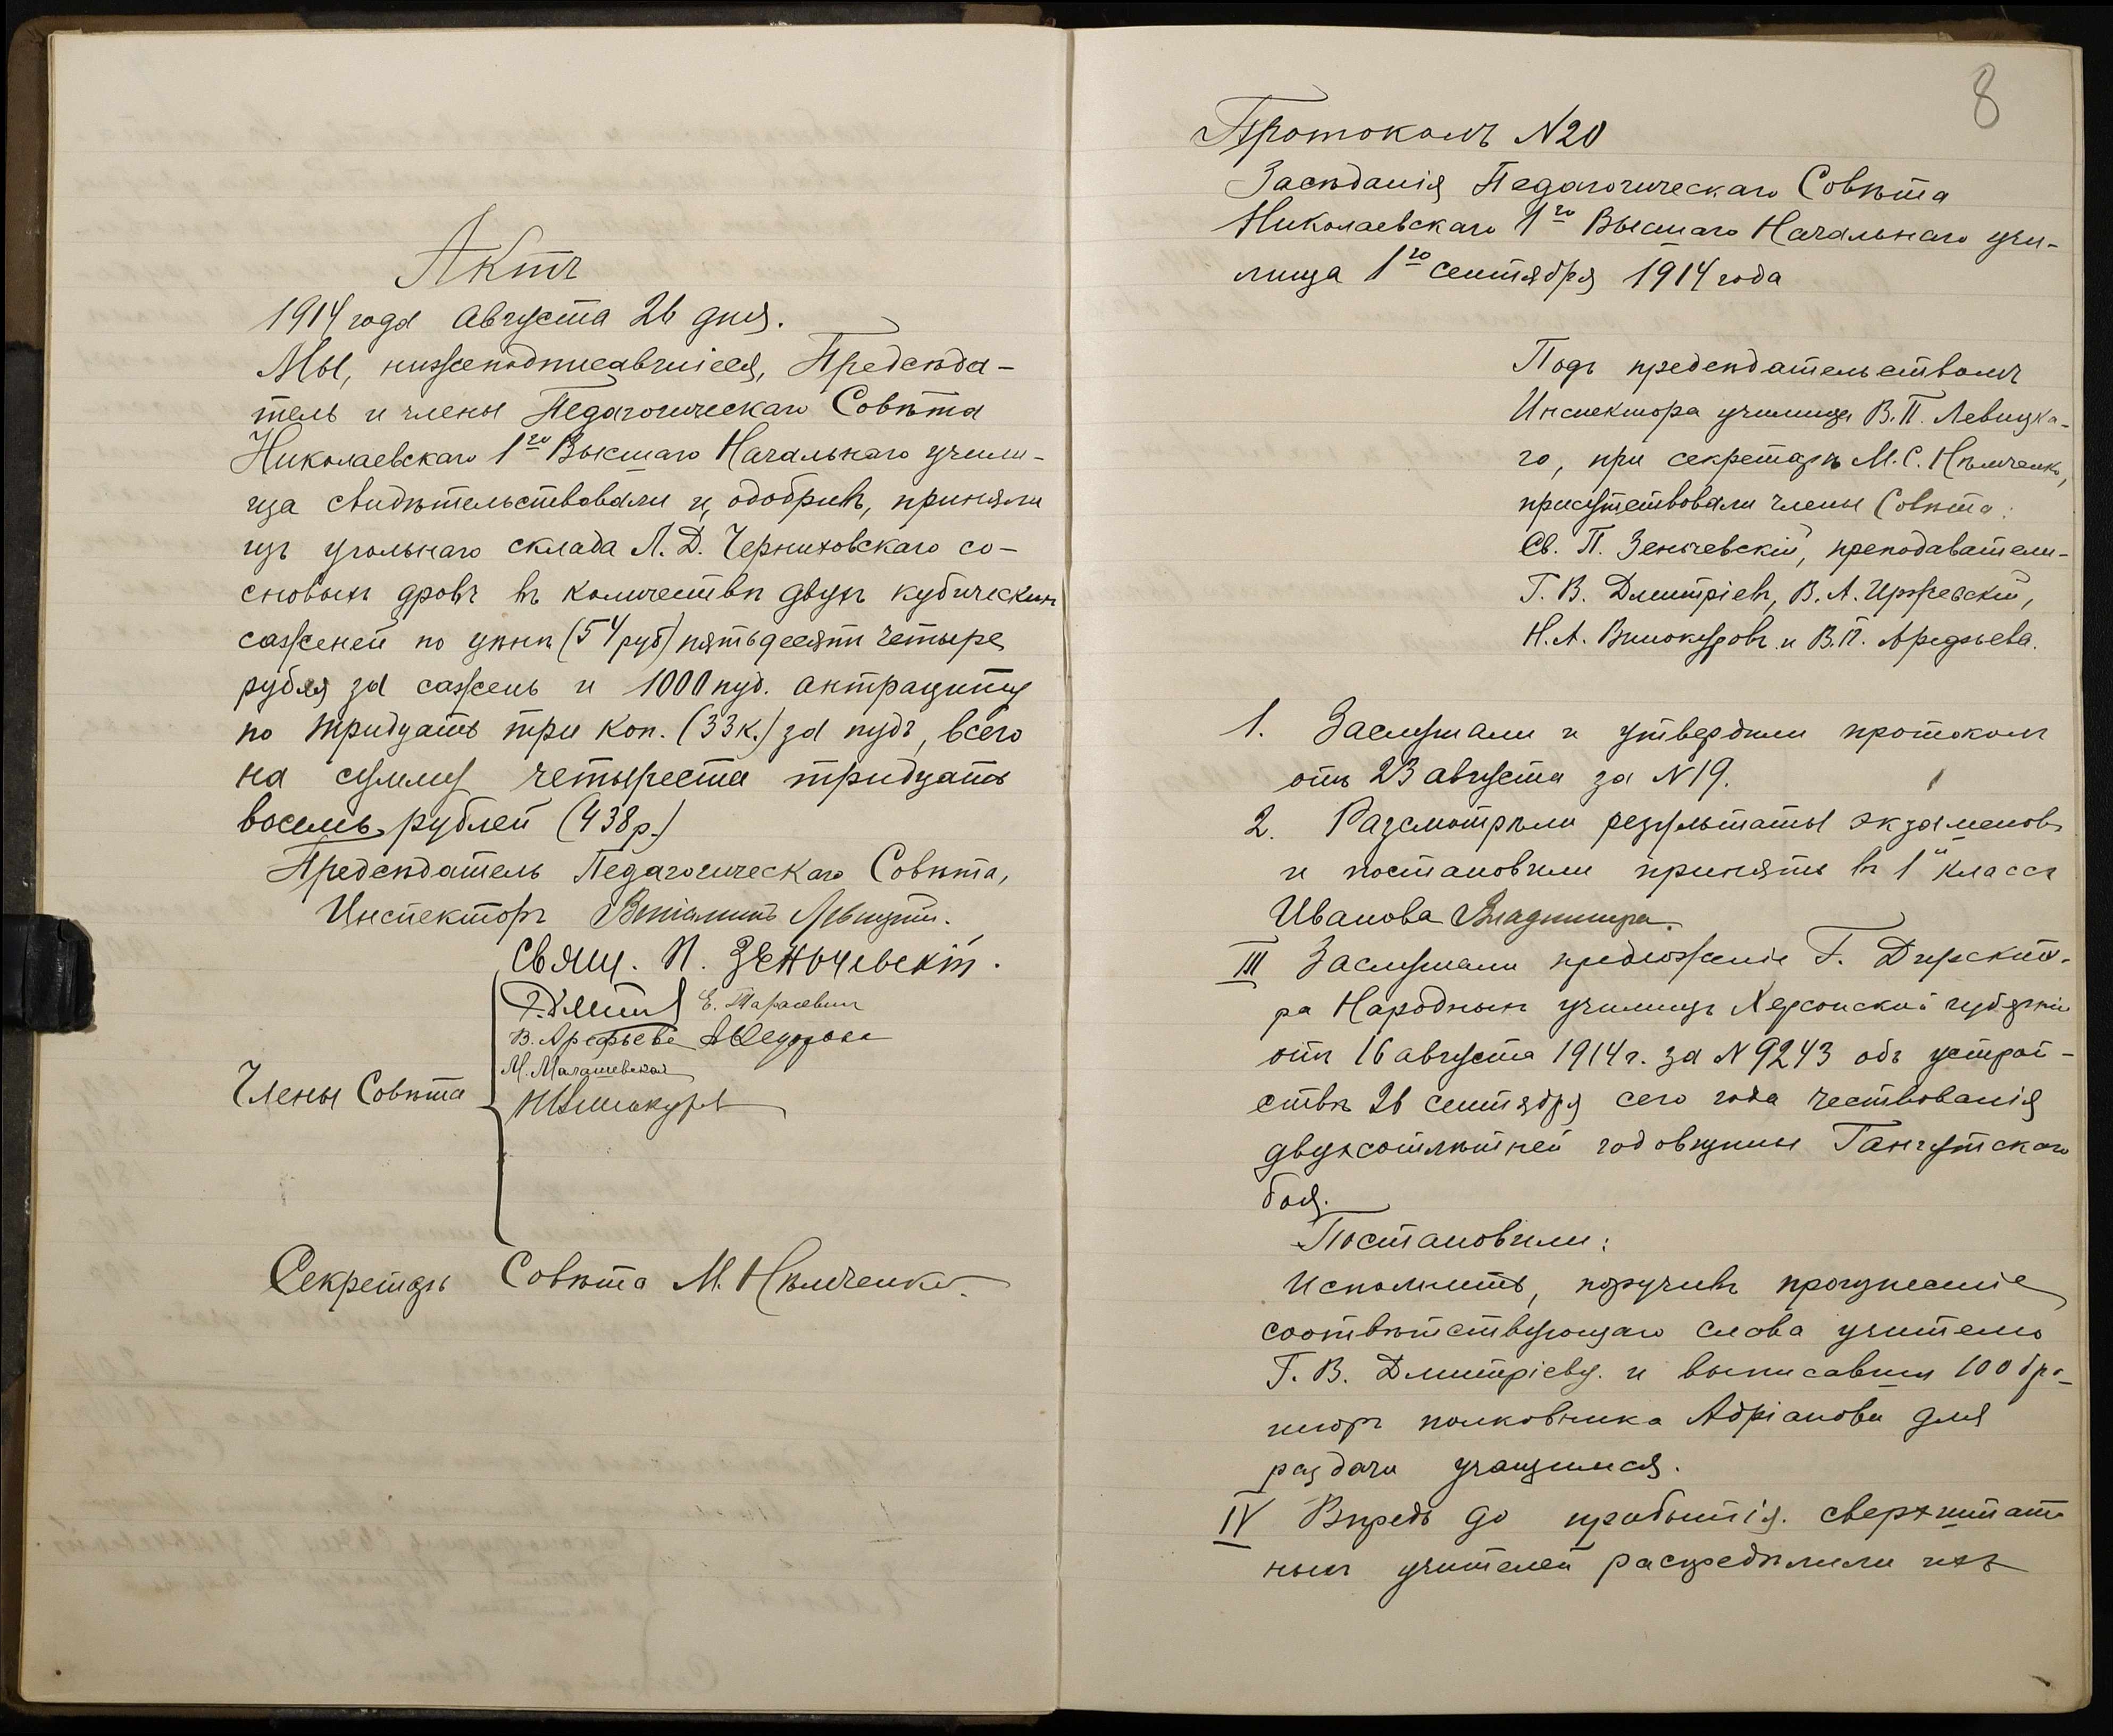 Актъ
1914 года Августа 26 дня.
Мы, нижеподписавшіеся, Предсѣда-
тель и члены Педагогическаго Совѣта
Николаевскаго 1го Высшаго Начальнаго учили-
ща свидѣтельствовали и, одобривъ, приняли
изъ угольнаго склада Л. Д. Черниховскаго со-
сновыхъ дровъ въ количествѣ двухъ кубическихъ
саженей по цѣнѣ (54 руб) пятьдесятъ четыре
рубля за сажень и 1000 пуд. антрациту
по тридцать три коп. (33 к.) за пудъ, всего
на сумму четыреста тридцать
восемь рублей (438 р.)
Предсѣдатель Педагогическаго Совѣта,
Инспекторъ Веніаминъ Левицкій.
Свящ. П. Зеньчевскій.
Е. Тарасевич
В. Арефьева А. Федорова
М. Малашевская
Члены Совѣта
Н. Винокуровъ
Секретарь Совѣта М. Нѣмченко.
8
Протоколъ N 20
Засѣданія Педагогическаго Совѣта
Николаевскаго 1го Высшаго Начальнаго учи-
лища 1го сентября 1914 года
Подъ предсѣдательствомъ
Инспектора училища В. П. Левицка-
го, при секретарѣ М. С. Нѣмченко,
присутствовали члены Совѣта:
Св. П. Зеньчевскій, преподаватели-
Г. В. Дмитріевъ, В. А. Иржевскій,
Н. А. Винокуровъ и В. П. Арефьева.
1. Заслушали и утвердили протоколъ
отъ 23 августа за N 19.
2. Разсмотрѣли результаты экзаменовъ
и постановили принять въ 1й классъ
Иванова Владимира.
III Заслушали предложеніе Г. Директо-
ра Народныхъ училищъ Херсонской губерніи
отъ 16 августа 1914 г. за N 9243 объ устрой-
ствѣ 26 сентября сего года чествованія
двухсотлѣтней годовщины Гангутскаго
боя.
Постановили:
Исполнить, поручивъ произнесеніе
соотвѣтствующаго слова учителю
Г. В. Дмитріеву. и выписавши 100 бро-
шюръ полковника Адріанова для
раздачи учащимся.
IV Впредь до прибытія. сверхштат-
ныхъ учителей распредѣлили ихъ